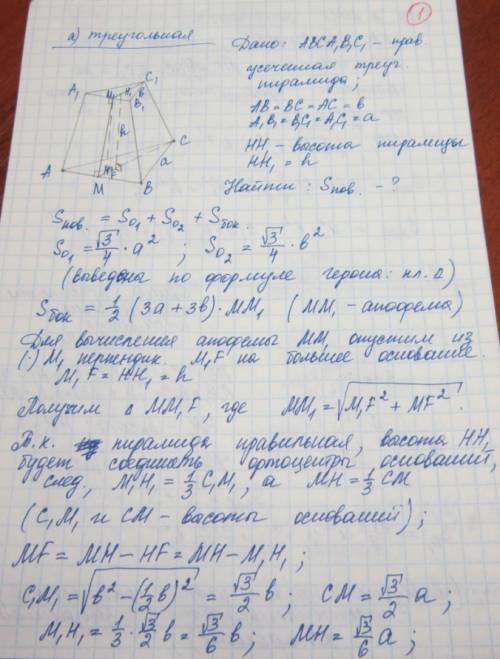 1
а) треугольная
Дано: ABCA₁B₁C₁ – прав.
усеченная треуг.
пирамида;
AB = BC = AC = в
A₁B₁ = B₁C₁ = A₁C₁ = a
HH₁ – высота пирамиды
HH₁ = h
Найти: Sпов. – ?
A₁ M₁ H₁ в C₁
B₁
h
C
a
A H F
M B
Sпов. = So₁ + So₂ + Sбок.
So₁ = √3/4 · a² ; So₂ = √3/4 · в²
(выведена по формуле герона: пл. Δ)
Sбок = 1/2 (3a + 3в) · MM₁ (MM₁ – апофема)
Для вычисления апофемы MM₁ опустим из
(·) M₁ перпендик. M₁F на большее основание.
M₁F = HH₁ = h
Получим Δ MM₁F, где MM₁ = √(M₁F² + MF²).
Т.к. пирамида правильная, высота HH₁
будет соединять ортоцентры оснований,
след., M₁H₁ = 1/3 C₁M₁, а MH = 1/3 CM
(C₁M₁ и CM – высоты оснований);
MF = MH – HF = MH – M₁H₁ ;
C₁M₁ = √(в² – (1/2 в)²) = √3/2 в ; CM = √3/2 a ;
M₁H₁ = 1/3 · √3/2 в = √3/6 в ; MH = √3/6 a ;